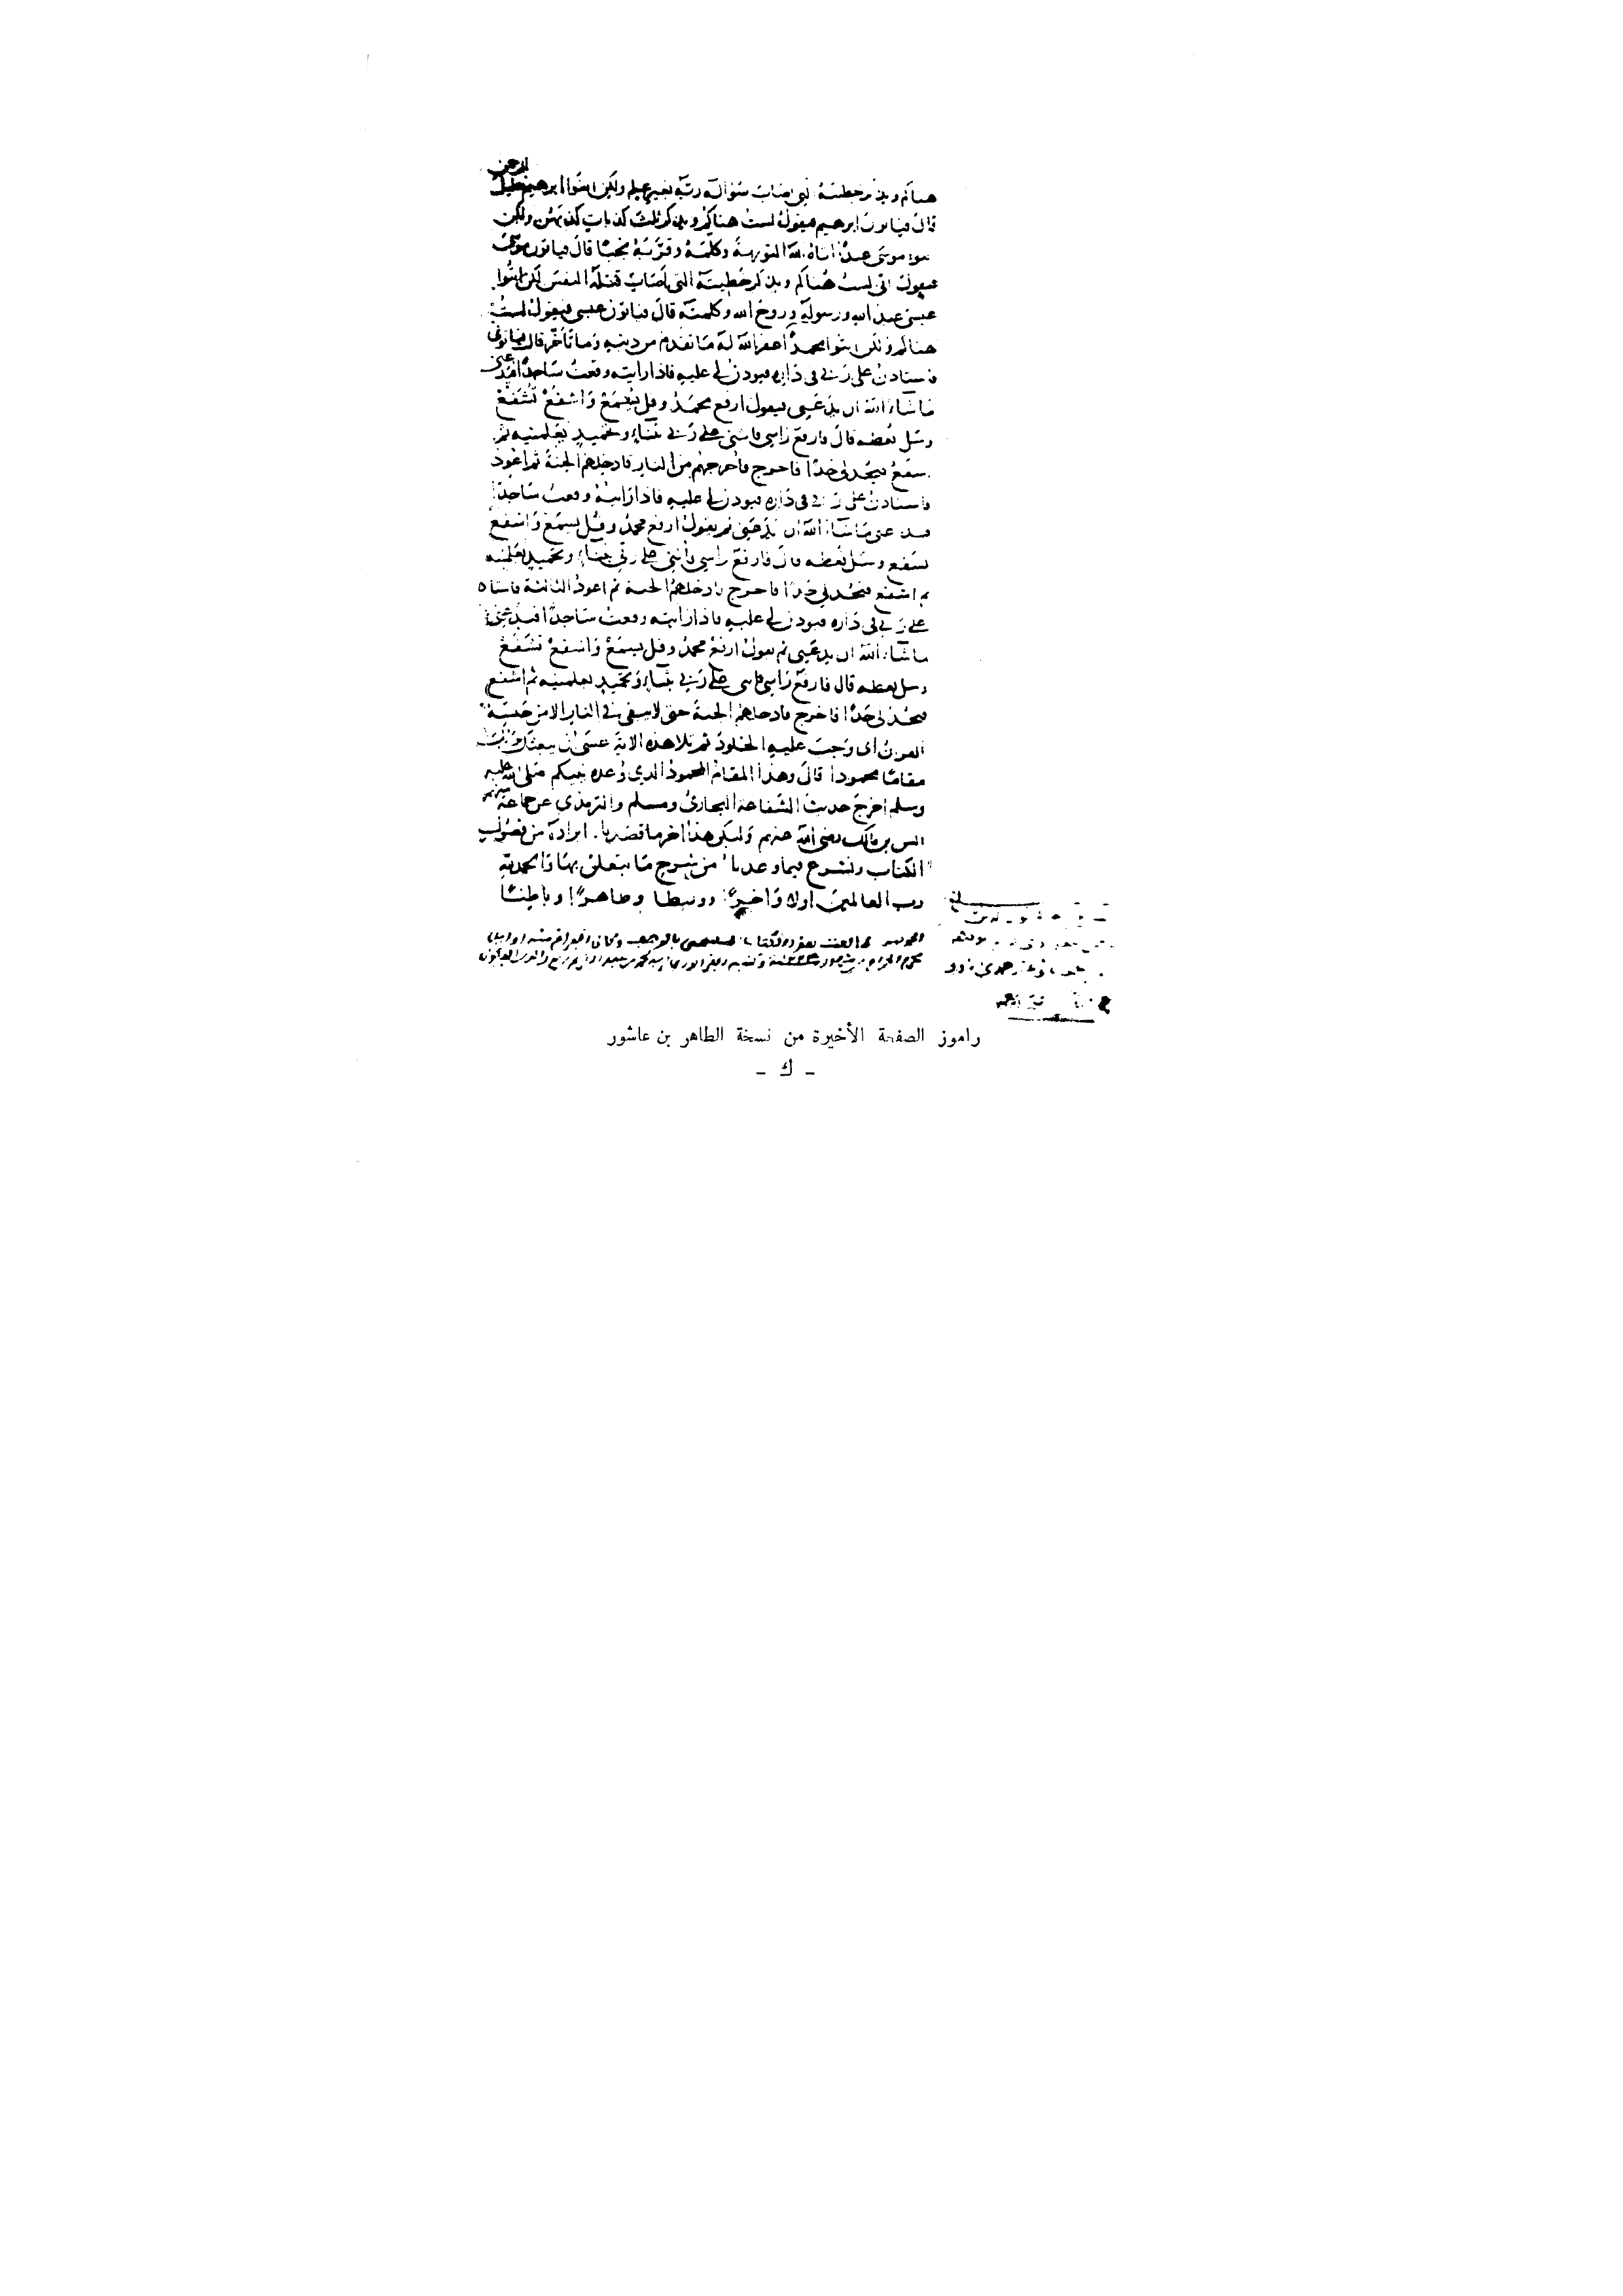 هناكم ويذكر خطيئته التي اصاب سؤاله ربه بغير علم ولكن ائتوا ابرهيم خليل الرحمن
قال فياتون ابرهيم فيقول لست هناكم ويذكر ثلث كذبات كذبهن ولكن
ائتوا موسى عبدًا اتاه الله التورية وكلمه وقربه نجيًا قال فياتون موسى
فيقول اني لست هناكم ويذكر خطيئته التي اصاب قتله النفس لكن ائتوا
عيسى عبد الله ورسوله وروح الله وكلمته قال فياتون عيسى فيقول لست
هناكم ولكن ائتوا محمدًا عبدًا غفر الله له ما تقدم من ذنبه وما تاخر قال فياتوني
فاستاذن على ربي في داره فيوذن لي عليه فاذا رايته وقعت ساجدًا فيدعني
ماشاء الله ان يدعني فيقول ارفع محمد وقل يسمع واشفع تشفع
وسل تعطه قال فارفع راسي فاثني على ربي بثناء وتحميد يعلمنيه ثم
اشفع فيحد لي حدًا فاخرج فاخرجهم من النار فادخلهم الجنة ثم اعود
فاستاذن على ربي في داره فيوذن لي عليه فاذا رايته وقعت ساجدًا
فيدعني ماشاء الله ان يدعني ثم يقول ارفع محمد وقل يسمع واشفع
تشفع وسل تعطه قال فارفع راسي فاثني على ربي بثناء وتحميد يعلمنيه
ثم اشفع فيحد لي حدًا فاخرج فادخلهم الجنة ثم اعود الثالثة فاستاذن
على ربي في داره فيوذن لي عليه فاذا رايته وقعت ساجدًا فيدعني
ماشاء الله ان يدعني ثم يقول ارفع محمد وقل يسمع واشفع تشفع
وسل تعطه قال فارفع راسي فاثني على ربي بثناء وتحميد يعلمنيه ثم اشفع
فيحد لي حدًا فاخرج فادخلهم الجنة حتى لا يبقى في النار الا من حبسه
القرن اي وجب عليه الخلود ثم تلا هذه الاية عسى ان يبعثك ربك
مقامًا محمودا قال وهذا المقام المحمود الذي وعده نبيكم صلى الله عليه
وسلم اخرج حديث الشفاعة البخاري ومسلم والترمذي عن جماعة منهم
انس بن مالك رضي الله عنهم وليكن هذا اخر ما قصدنا ايراده من فصول
الكتاب ونشرع فيما وعدنا من شرح ما يتعلق بها والحمد لله
رب العالمين اولا واخيرًا ووسطا وظاهرًا وباطنًا
راموز الصفحة الأخيرة من نسخة الطاهر بن عاشور
- ك -